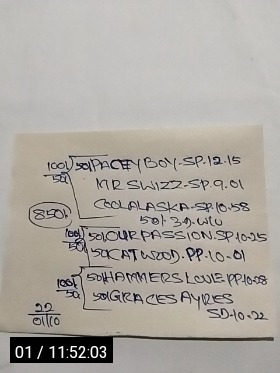 100/50 50/PACEY BOY-SP.12.15
MR SWIZZ-SP.9.01
COOLALASKA-SP.10.58
850/.
50/. 3.D.W/U
100/50 50/OUR PASSION.SP.10.25
50/CATWOOD.PP.10.01
100/50 50/HAMMERSLOVIE PP.10.08
50/GRACES AYRES
SD.10.22
22
01/10
01 / 11:52:03